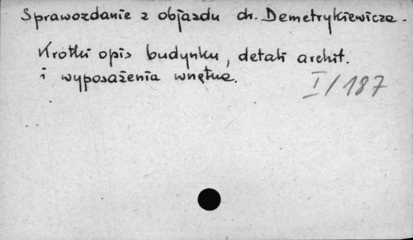 Sprawozdanie z objazdu dr. Demetrykiewicza.
Krótki opis budynku, detali archit.
i wyposażenia wnętrz.
I/187